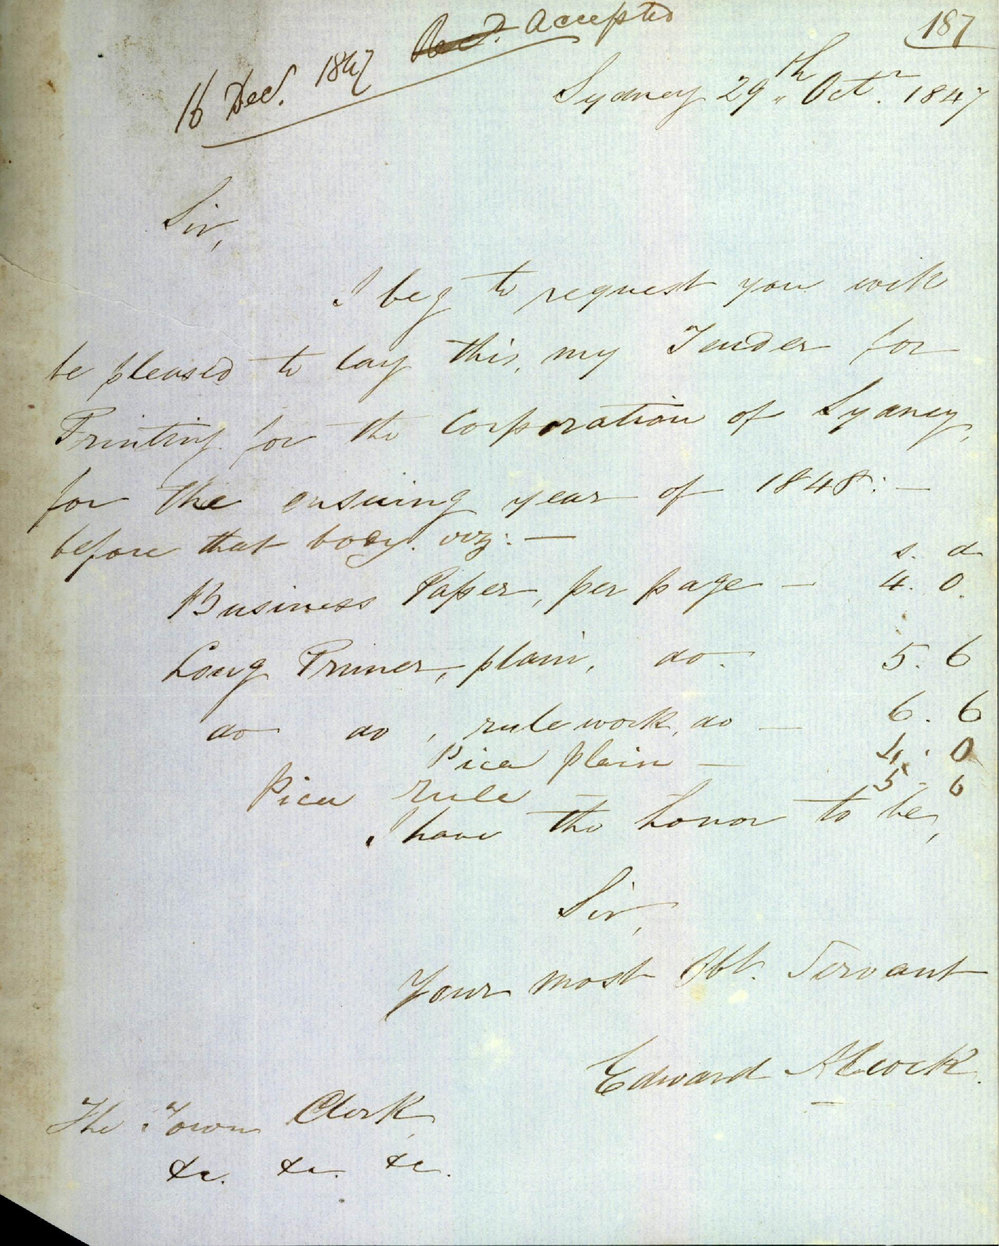 187
accepted
16 Decr. 1847
Sydney 29th Octr. 1847
Sir,
I beg to request you will
be pleased to lay this, my Tender for
Printing for the Corporation of Sydney,
for the ensuing year of 1848:—
before that body. viz:—
s. d
Business Paper, per page — 4. 0.
Long Primer, plain, do. 5. 6
do do, rule work, do — 6. 6
Pica plain — 4. 0
Pica rule — 5. 6
I have the honor to be,
Sir,
Your most Obt. Servant
Edward Alcock.
The Town Clerk,
&c. &c. &c.